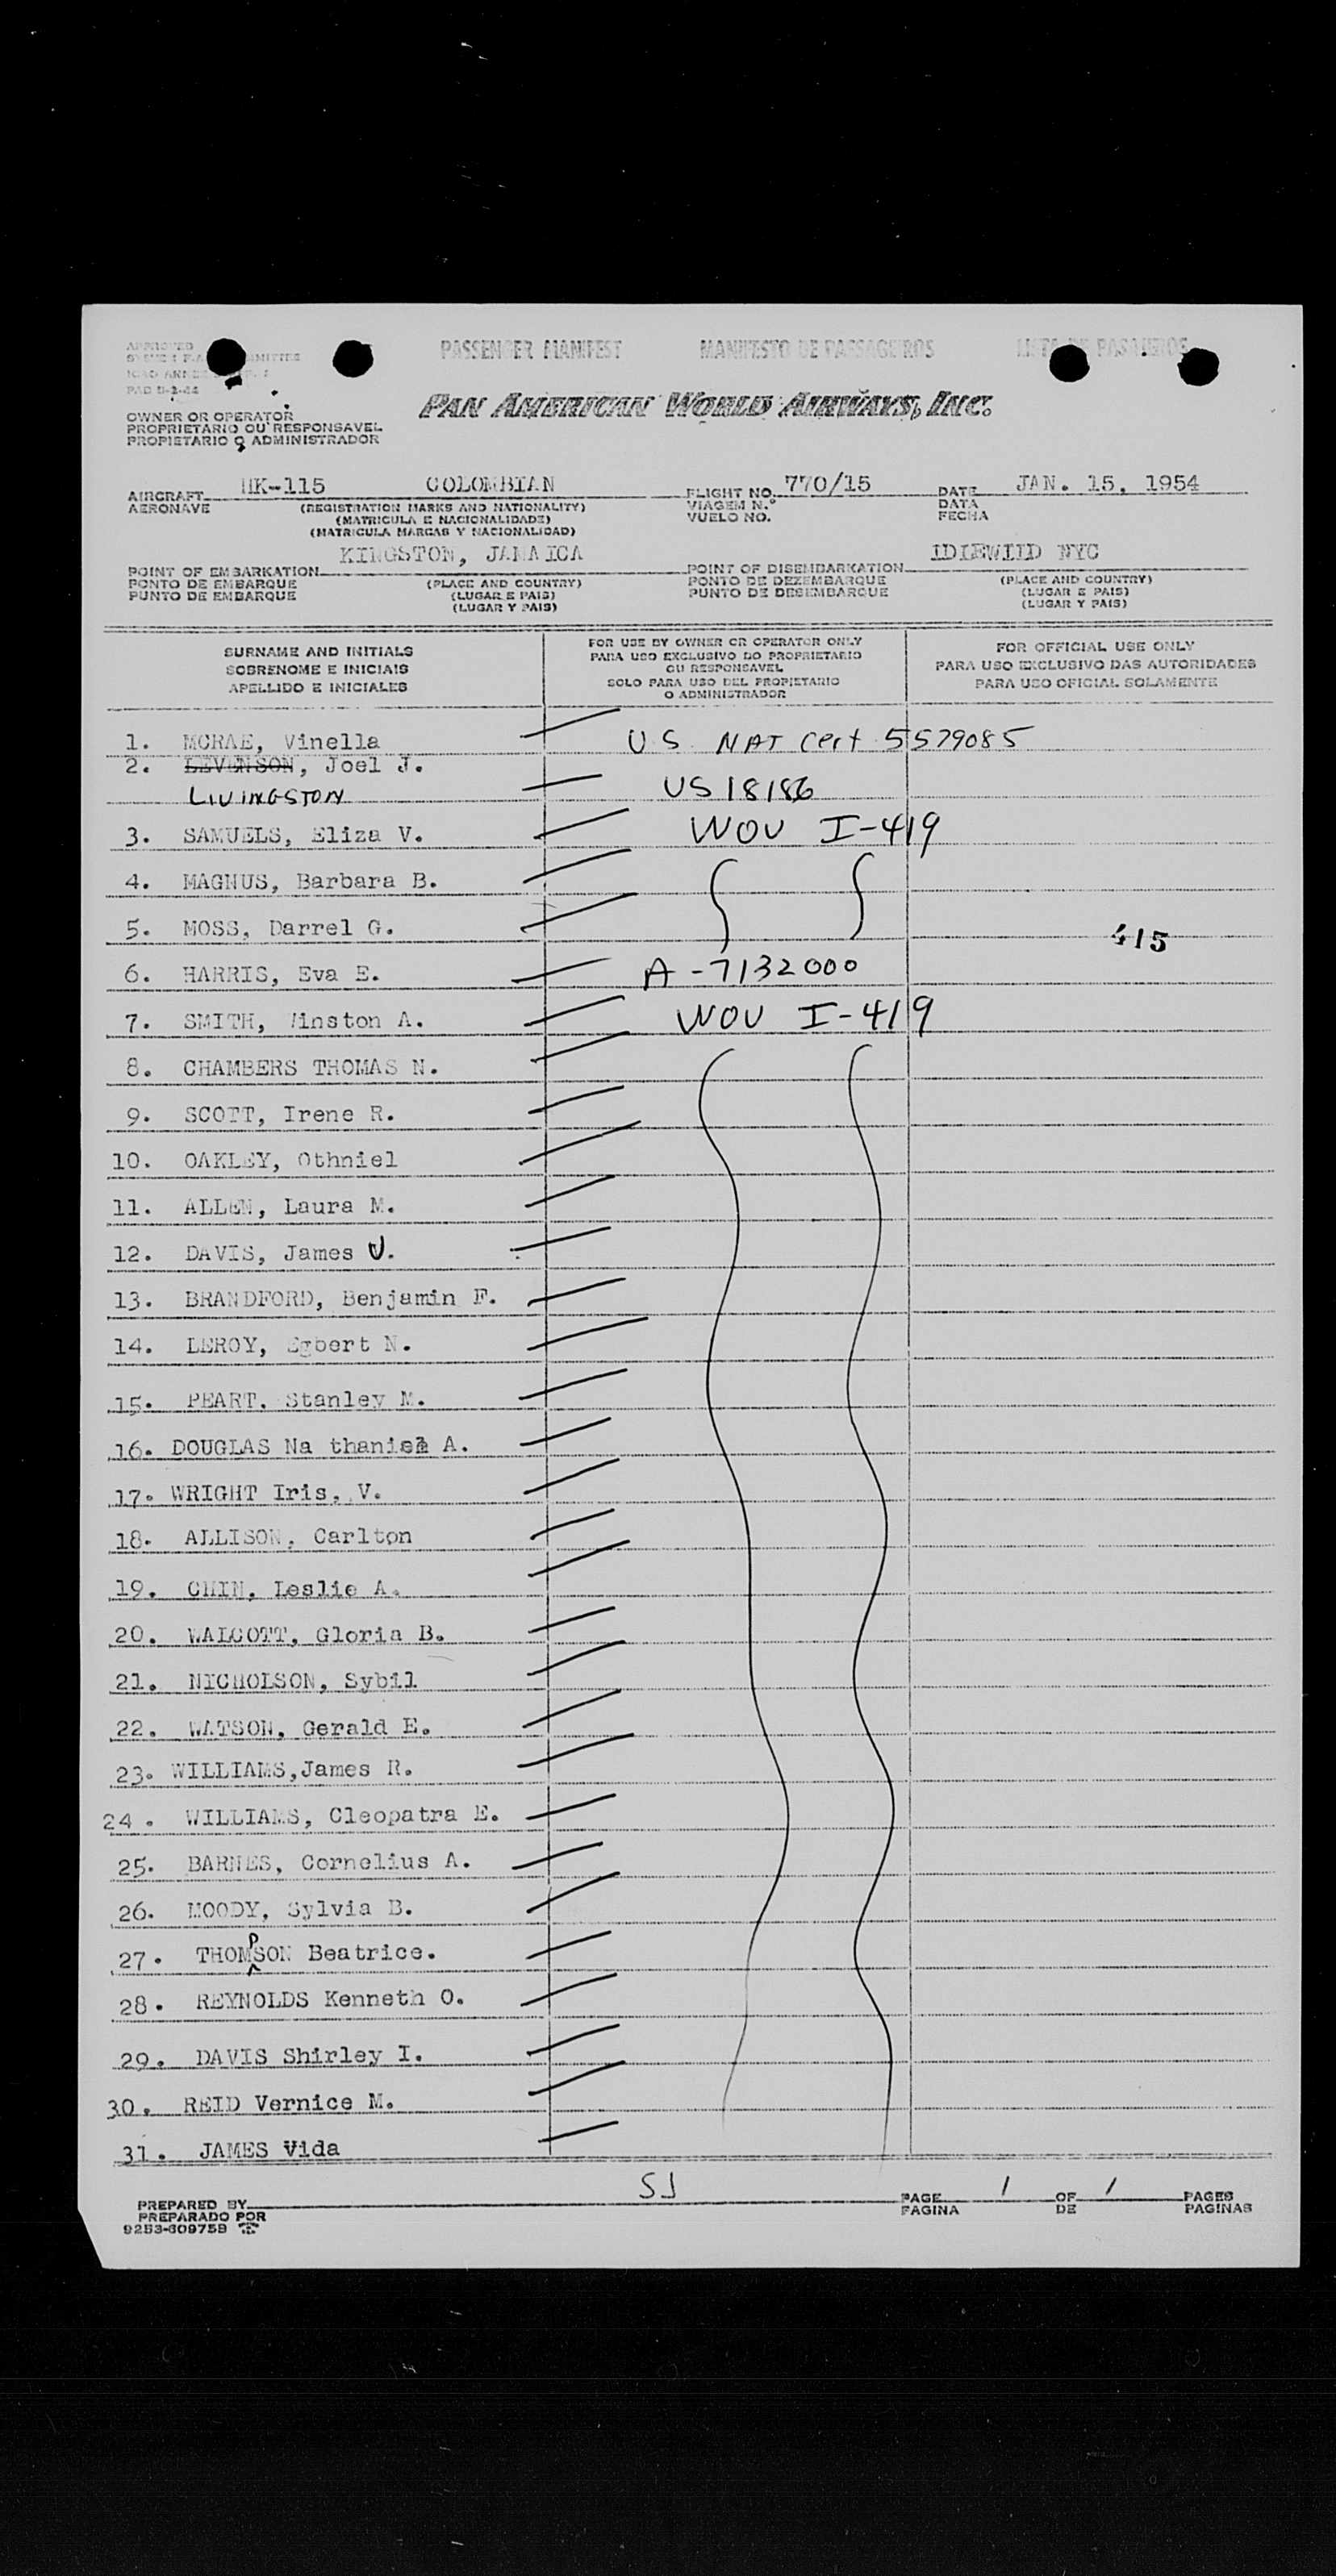 APPROVED
PAD 5-2-44
PASSENGER MANIFEST MANIFESTO DE PASSAGEIROS LISTA DE PASAJEROS
PAN AMERICAN WORLD AIRWAYS, INC.
OWNER OR OPERATOR
PROPRIETARIO OU RESPONSAVEL
PROPIETARIO O ADMINISTRADOR
AIRCRAFT HK-115 COLOMBIAN FLIGHT NO. 770/15 DATE JAN. 15, 1954
AERONAVE (REGISTRATION MARKS AND NATIONALITY) VIAGEM N.º DATA
(MATRICULA E NACIONALIDADE) VUELO NO. FECHA
(MATRICULA MARCAS Y NACIONALIDAD)
POINT OF EMBARKATION KINGSTON, JAMAICA POINT OF DISEMBARKATION IDIEWIID NYC
PONTO DE EMBARQUE (PLACE AND COUNTRY) PONTO DE DEZEMBARQUE (PLACE AND COUNTRY)
PUNTO DE EMBARQUE (LUGAR E PAIS) PUNTO DE DESEMBARQUE (LUGAR E PAIS)
(LUGAR Y PAIS) (LUGAR Y PAIS)
SURNAME AND INITIALS
SOBRENOME E INICIAIS
APELLIDO E INICIALES
FOR USE BY OWNER OR OPERATOR ONLY
PARA USO EXCLUSIVO DO PROPRIETARIO
OU RESPONSAVEL
SOLO PARA USO DEL PROPIETARIO
O ADMINISTRADOR
FOR OFFICIAL USE ONLY
PARA USO EXCLUSIVO DAS AUTORIDADES
PARA USO OFICIAL SOLAMENTE
1. MCRAE, Vinella US NAT Cert 5579085
2. LEVENSON, Joel J.
LIVINGSTON US 18186
3. SAMUELS, Eliza V. WOV I-419
4. MAGNUS, Barbara B.
5. MOSS, Darrel G. 415
6. HARRIS, Eva E. A-7132000
7. SMITH, Winston A. WOV I-419
8. CHAMBERS THOMAS N.
9. SCOTT, Irene R.
10. OAKLEY, Othniel
11. ALLEN, Laura M.
12. DAVIS, James U.
13. BRANDFORD, Benjamin F.
14. LEROY, Egbert N.
15. PEART, Stanley M.
16. DOUGLAS Na thaniel A.
17. WRIGHT Iris, V.
18. ALLISON, Carlton
19. CHIN, Leslie A.
20. WALCOTT, Gloria B.
21. NICHOLSON, Sybil
22. WATSON, Gerald E.
23. WILLIAMS, James R.
24. WILLIAMS, Cleopatra E.
25. BARNES, Cornelius A.
26. MOODY, Sylvia B.
27. THOMPSON Beatrice.
28. REYNOLDS Kenneth O.
29. DAVIS Shirley I.
30. REID Vernice M.
31. JAMES Vida
PREPARED BY SJ PAGE 1 OF 1 PAGES
PREPARADO POR PAGINA DE PAGINAS
9253-609759